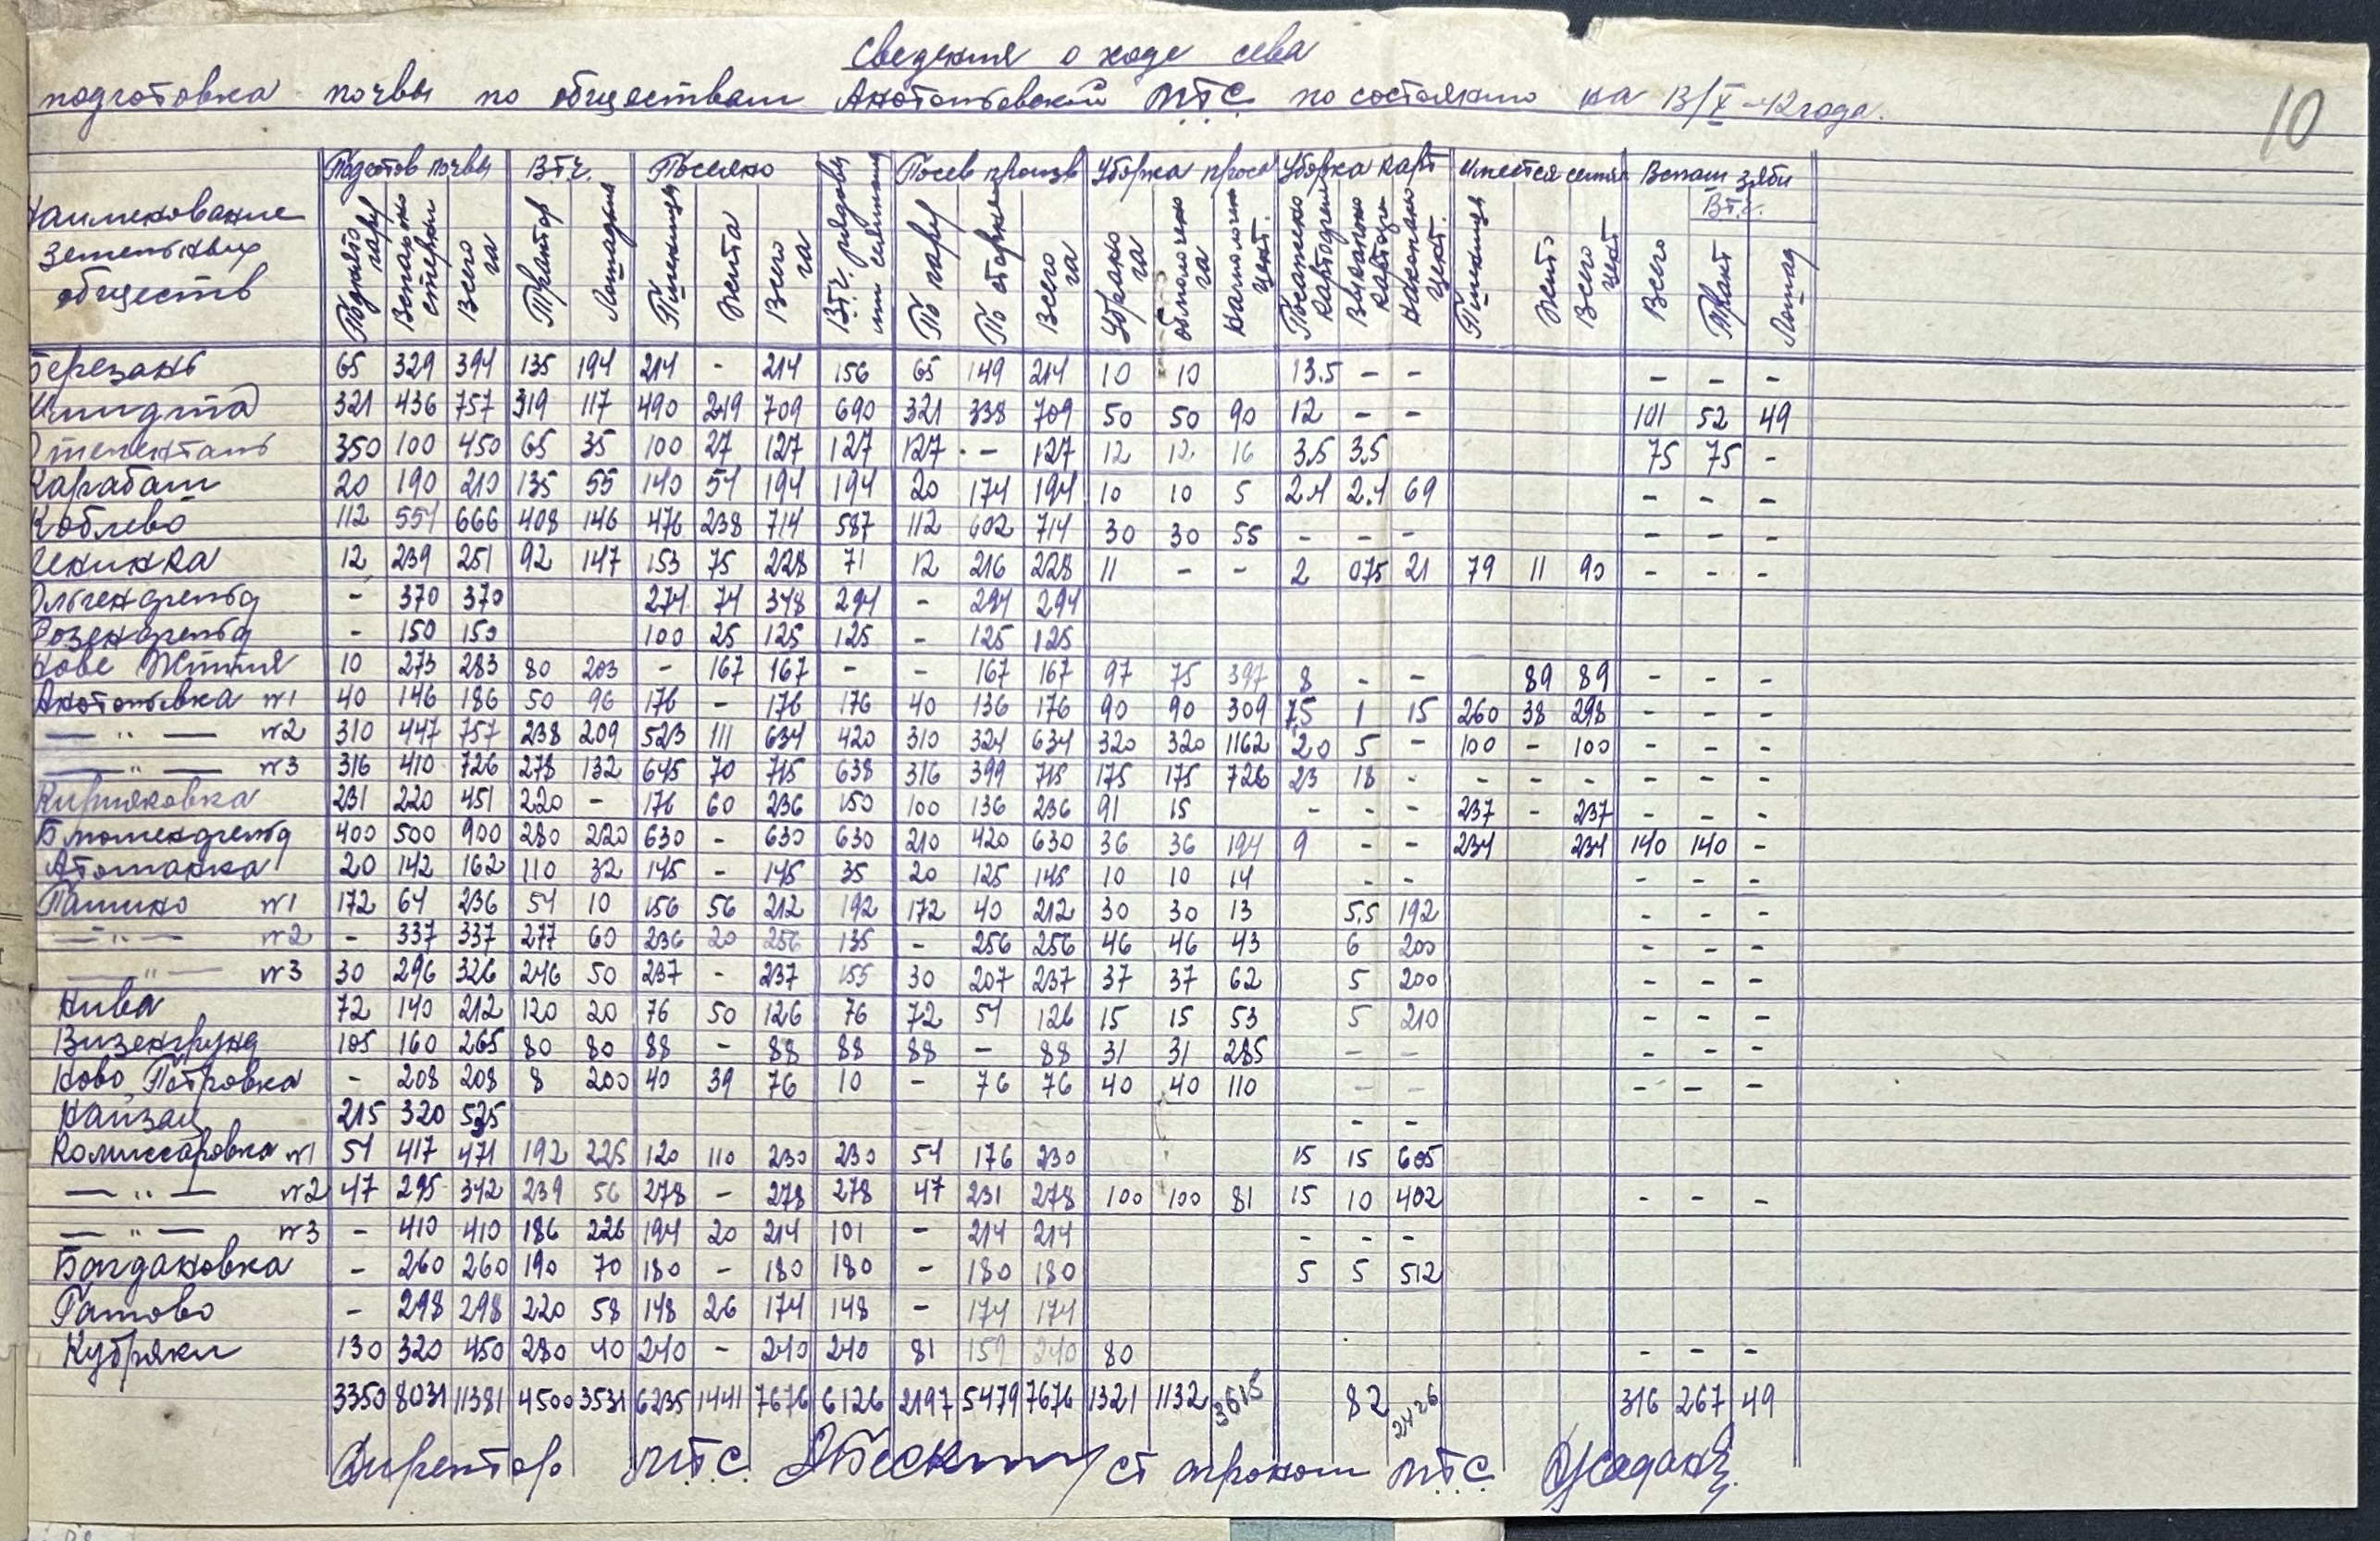 10
Сведения о ходе сева
подготовка почвы по обществам Анатольевской М.Т.С. по состоянию на 13/X-42 года.
Наименование земельных обществ
Подготов почвы | В.т.ч. | Посеяно | В.т.ч. рядовыми сеялками | Посев произв | Уборка проса | Уборка карт | Имеется семян | Вспаш зяби
В т.ч.
Поднято пару | Вспахано стерни | Всего га | Трактор | Лошадьми | Пшеница | Жита | Всего га | По пару | По стерне | Всего га | Убрано га | обмолочено га | намолочен цент. | Посажено картофеля | Выкопано картофеля | накопано цент. | Пшеница | Жито | Всего цент | Всего | Тракт | Лошад
Березань 65 329 394 135 194 214 - 214 156 65 149 214 10 10 13.5 - - - - -
Шмидта 321 436 757 319 117 490 219 709 690 321 338 709 50 50 90 12 - - 101 52 49
350 100 450 65 35 100 27 127 127 127 - 127 12 12 16 3.5 3.5 75 75 -
Карабаш 20 190 210 135 55 140 54 194 194 20 174 194 10 10 5 2.4 2.4 69 - - -
Коблево 112 554 666 408 146 476 238 714 587 112 602 714 30 30 55 - - - - - -
Ленинка 12 239 251 92 147 153 75 228 71 12 216 228 11 - - 2 075 21 79 11 90 - - -
Ольгенфельд - 370 370 274 74 348 294 - 294 294
Розенфельд - 150 150 100 25 125 125 - 125 125
Нове Життя 10 273 283 80 203 - 167 167 - - 167 167 97 75 397 8 - - 89 89 - - -
Анатольевка №1 40 146 186 50 96 176 - 176 176 40 136 176 90 90 309 7,5 1 15 260 38 298 - - -
— " — №2 310 447 757 238 209 523 111 634 420 310 324 634 320 320 1162 20 5 - 100 - 100 - - -
— " — №3 316 410 726 278 132 645 70 715 638 316 399 715 175 175 726 23 18 - - - - - - -
Киряковка 231 220 451 220 - 176 60 236 150 100 136 236 91 15 - - - 237 - 237 - - -
Блюменфельд 400 500 900 280 220 630 - 630 630 210 420 630 36 36 194 9 - - 234 234 140 140 -
Атаманка 20 142 162 110 32 145 - 145 35 20 125 145 10 10 14 - - - - -
Ташино №1 172 64 236 54 10 156 56 212 192 172 40 212 30 30 13 5.5 192 - - -
— " — №2 - 337 337 277 60 236 20 256 135 - 256 256 46 46 43 6 200 - - -
— " — №3 30 296 326 246 50 237 - 237 155 30 207 237 37 37 62 5 200 - - -
Нива 72 140 212 120 20 76 50 126 76 72 54 126 15 15 53 5 210 - - -
Визенгрунд 105 160 265 80 80 88 - 88 88 88 - 88 31 31 285 - - - - -
Ново Петровка - 208 208 8 200 40 39 76 10 - 76 76 40 40 110 - - - - -
Найзац 215 320 535 - -
Комиссаровка №1 54 417 471 192 225 120 110 230 230 54 176 230 15 15 605
— " — №2 47 295 342 239 56 278 - 278 278 47 231 278 100 100 81 15 10 402 - - -
— " — №3 - 410 410 186 226 194 20 214 101 - 214 214 - - -
Богдановка - 260 260 190 70 180 - 180 180 - 180 180 5 5 512
Гатово - 298 298 220 58 148 26 174 148 - 174 174
Кубряки 130 320 450 280 40 240 - 240 240 81 159 240 80 - - -
3350 8031 11381 4500 3531 6235 1441 7676 6126 2197 5479 7676 1321 1132 3615 82 2426 316 267 49
Директор М.Т.С. ст агроном М.Т.С.